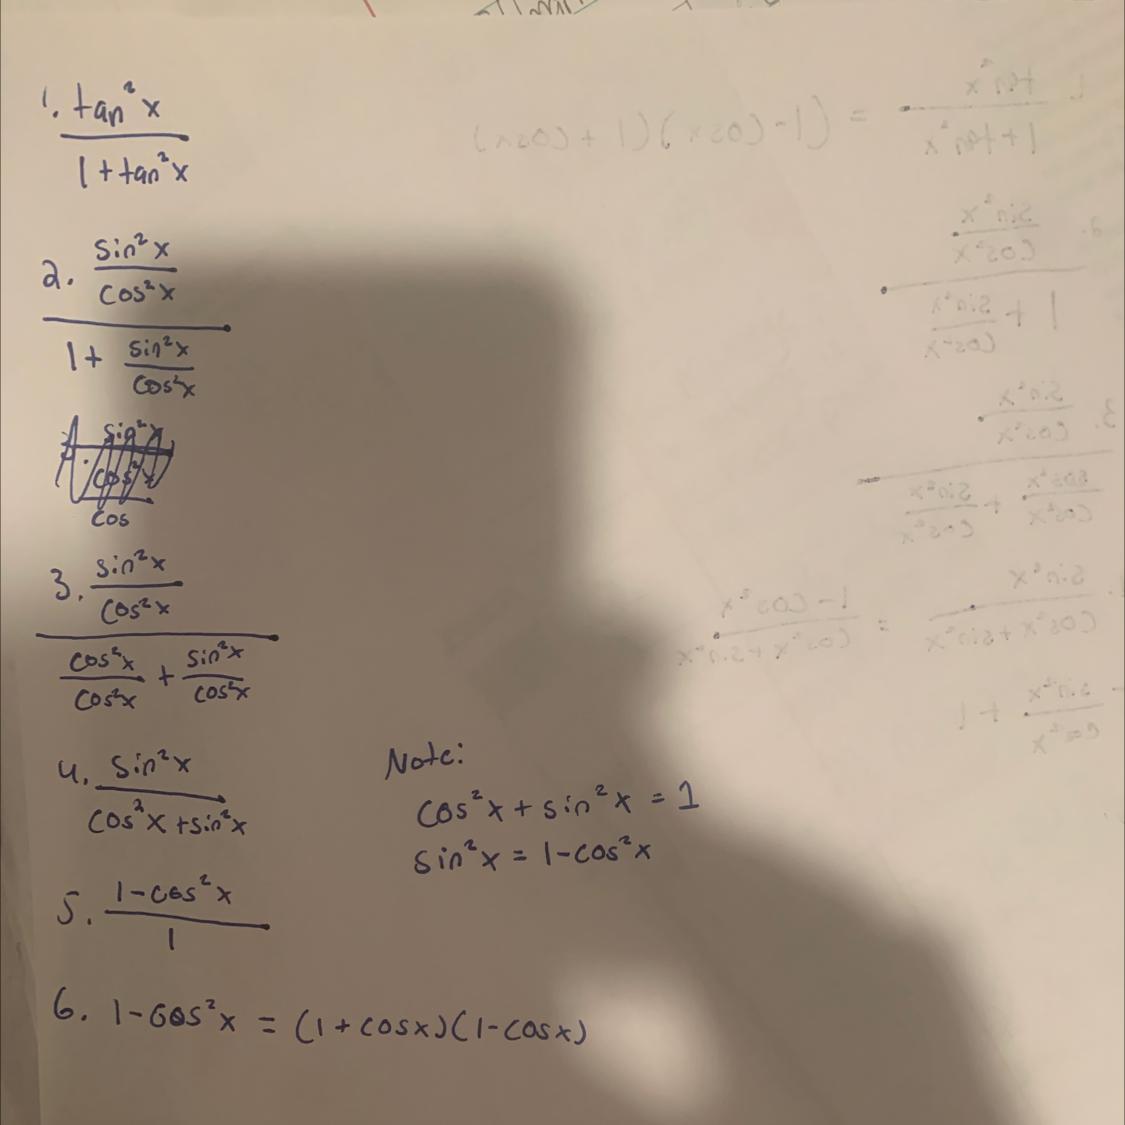 1. tan²x
1 + tan²x
2. sin²x
cos²x
1 + sin²x
cos²x
sin²x
cos²x
cos
3. sin²x
cos²x
cos²x + sin²x
cos²x cos²x
4. sin²x
cos²x + sin²x
Note:
cos²x + sin²x = 1
sin²x = 1 - cos²x
5. 1 - cos²x
1
6. 1 - cos²x = (1 + cosx)(1 - cosx)